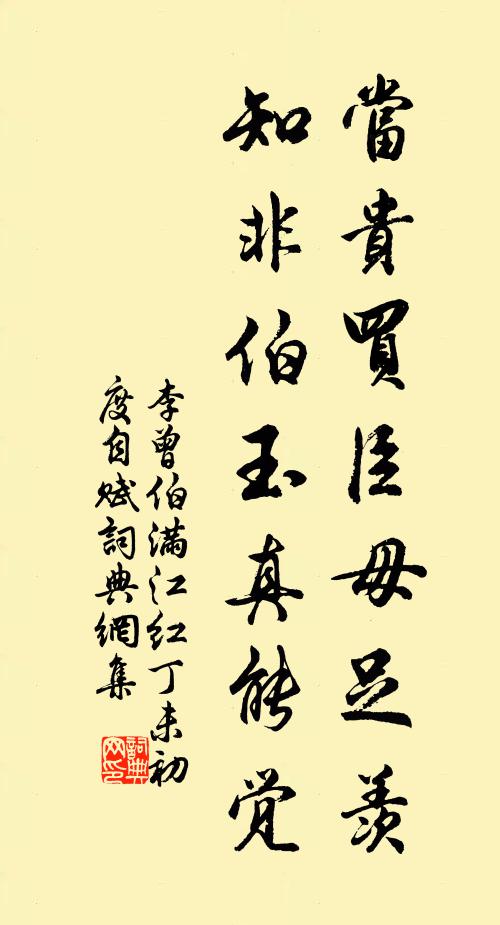 當貴買臣毋足羨
知非伯玉真能觉
李曾伯满江红丁未初
度自赋詞典網集
詞典
网印